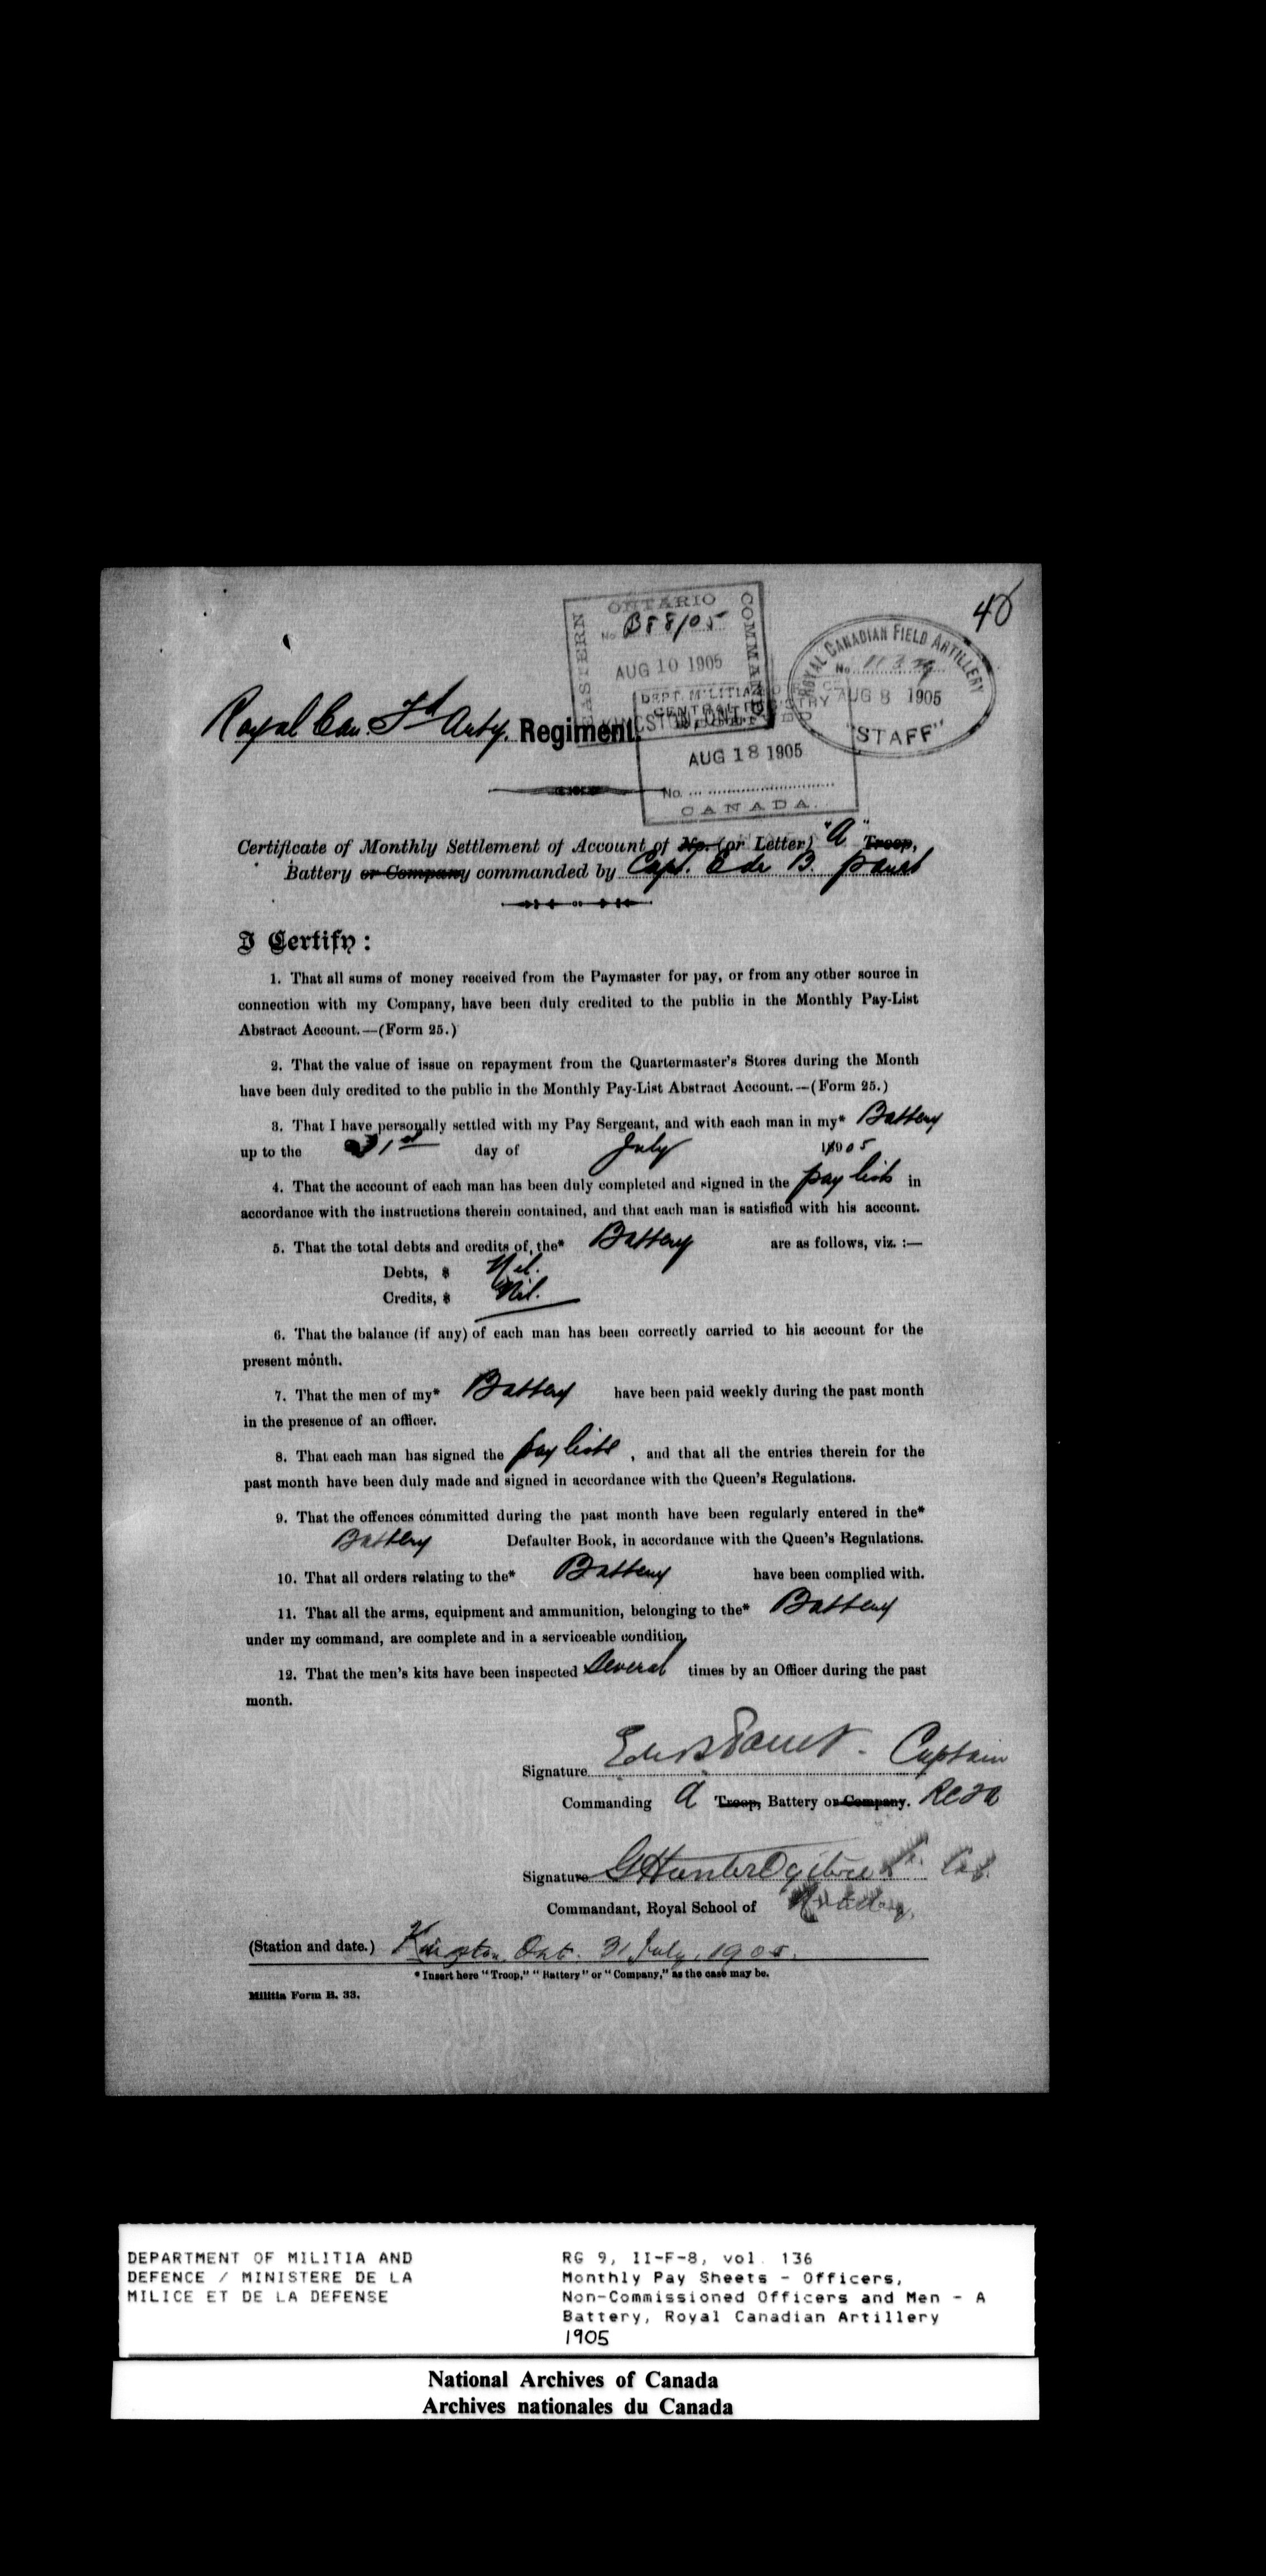 40
EASTERN ONTARIO COMMAND
No B88/05
AUG 10 1905
KINGSTON, ONT.
ROYAL CANADIAN FIELD ARTILLERY
No
AUG 8 1905
"STAFF"
DEPT. MILITIA
CENTRAL REGISTRY
AUG 18 1905
No.
CANADA.
Royal Can. Fd Arty. Regiment.
Certificate of Monthly Settlement of Account of No. (or Letter) "A" Troop,
Battery or Company commanded by Capt. Ede B. Panet
I Certify:
1. That all sums of money received from the Paymaster for pay, or from any other source in
connection with my Company, have been duly credited to the public in the Monthly Pay-List
Abstract Account.—(Form 25.)
2. That the value of issue on repayment from the Quartermaster's Stores during the Month
have been duly credited to the public in the Monthly Pay-List Abstract Account.—(Form 25.)
3. That I have personally settled with my Pay Sergeant, and with each man in my* Battery
up to the 31st day of July 1905
4. That the account of each man has been duly completed and signed in the pay lists in
accordance with the instructions therein contained, and that each man is satisfied with his account.
5. That the total debts and credits of, the* Battery are as follows, viz. :—
Debts, $ Nil.
Credits, $ Nil.
6. That the balance (if any) of each man has been correctly carried to his account for the
present month.
7. That the men of my* Battery have been paid weekly during the past month
in the presence of an officer.
8. That each man has signed the pay lists, and that all the entries therein for the
past month have been duly made and signed in accordance with the Queen's Regulations.
9. That the offences committed during the past month have been regularly entered in the*
Battery Defaulter Book, in accordance with the Queen's Regulations.
10. That all orders relating to the* Battery have been complied with.
11. That all the arms, equipment and ammunition, belonging to the* Battery
under my command, are complete and in a serviceable condition.
12. That the men's kits have been inspected Several times by an Officer during the past
month.
Signature EdeBPanet. Captain
Commanding A Troop, Battery or Company. RCFA
Signature GHunterOgilvie Lt. Col.
Commandant, Royal School of Artillery.
(Station and date.) Kingston Ont. 31 July. 1905.
* Insert here "Troop," "Battery" or "Company," as the case may be.
Militia Form B. 33.
DEPARTMENT OF MILITIA AND
DEFENCE / MINISTERE DE LA
MILICE ET DE LA DEFENSE
RG 9, II-F-8, vol. 136
Monthly Pay Sheets - Officers,
Non-Commissioned Officers and Men - A
Battery, Royal Canadian Artillery
1905
National Archives of Canada
Archives nationales du Canada